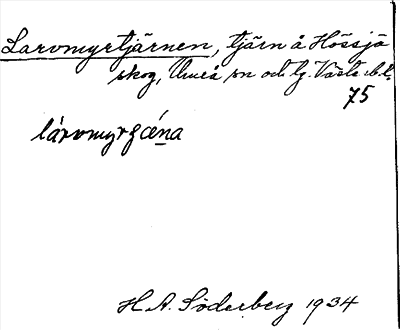 Larvmyrtjärnen, tjärn å Hössjö
skog, Umeå sn och tg. Väst. b. l.
75
lárvmyrꞔéna
H. A. Söderberg 1934